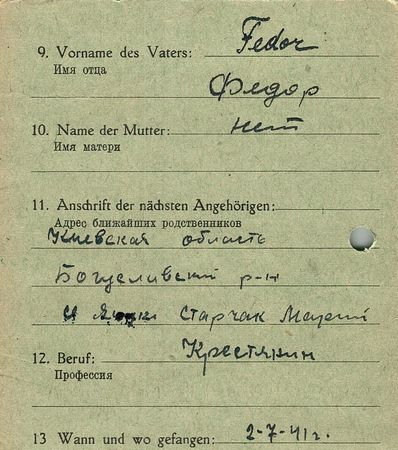 9. Vorname des Vaters: Fedor
Имя отца
Федор
10. Name der Mutter: нет
Имя матери
11. Anschrift der nächsten Angehörigen:
Адрес ближайших родственников
Киевская область
Богуславский р-н
Старчак
12. Beruf: Крестянин
Профессия
13 Wann und wo gefangen: 2-7-41г.